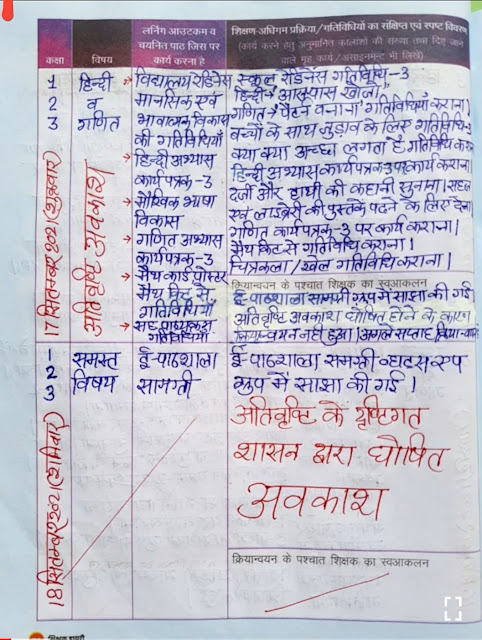 कक्षा
विषय
लर्निंग आउटकम व चयनित पाठ जिस पर कार्य करना है
शिक्षण-अधिगम प्रक्रिया/गतिविधियों का संक्षिप्त एवं स्पष्ट विवरण
(कार्य करने हेतु अनुमानित कालांशों की संख्या तथा दिए जाने
वाले गृह कार्य/असाइनमेन्ट भी लिखें)
1
2
3
17 सितम्बर 2021 (शुक्रवार)
हिन्दी
व
गणित
अतिवृष्टि अवकाश
→ विद्यालय रेडिनेस
मानसिक एवं
भावात्मक विकास
की गतिविधियाँ
→ हिन्दी अभ्यास
कार्य पत्रक-3
→ मौखिक भाषा
विकास
→ गणित अभ्यास
कार्यपत्रक-3
→ मैथ कार्ड पोस्टर
मैथ किट से
गतिविधियां
→ सह पाठ्यक्रम
गतिविधियाँ
स्कूल रेडिनेस गतिविधि-3
हिन्दी→ आसपास खोलो,
गणित→ पैटर्न बनाना गतिविधियाँ कराना।
बच्चों के साथ जुड़ाव के लिए गतिविधि-3
क्या क्या अच्छा लगता है गतिविधि कराना
हिन्दी अभ्यास कार्यपत्रक-3 पर कार्य कराना
दर्जी और हाथी की कहानी सुनाना।
एवं लाइब्रेरी की पुस्तकें पढने के लिए देना
गणित कार्यपत्रक-3 पर कार्य कराना।
मैथ किट से गतिविधि कराना।
चित्रकला/खेल गतिविधि कराना।
क्रियान्वयन के पश्चात शिक्षक का स्वआकलन
ई-पाठशाला सामग्री ग्रुप में साझा की गई।
अतिवृष्टि अवकाश घोषित होने के कारण
क्रियान्वयन नहीं हुआ। अगले सप्ताह किया
1
2
3
18 सितम्बर 2021 (शनिवार)
समस्त
विषय
ई-पाठशाला
सामग्री
ई-पाठशाला सामग्री व्हाटसएप
ग्रुप में साझा की गई।
अतिवृष्टि के दृष्टिगत
शासन द्वारा घोषित
अवकाश
क्रियान्वयन के पश्चात शिक्षक का स्वआकलन
शिक्षक डायरी